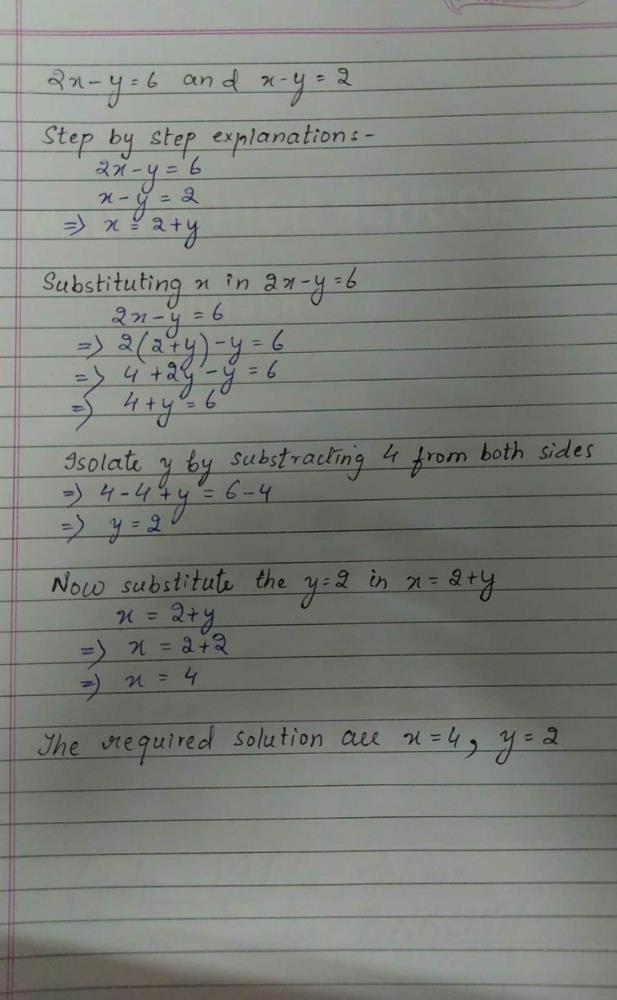 2x-y=6 and x-y=2
Step by step explanations:-
2x-y=6
x-y=2
=> x=2+y
Substituting x in 2x-y=6
2x-y=6
=> 2(2+y)-y=6
=> 4+2y-y=6
=> 4+y=6
Isolate y by substracting 4 from both sides
=> 4-4+y=6-4
=> y=2
Now substitute the y=2 in x=2+y
x=2+y
=> x=2+2
=> x=4
The required solution are x=4, y=2